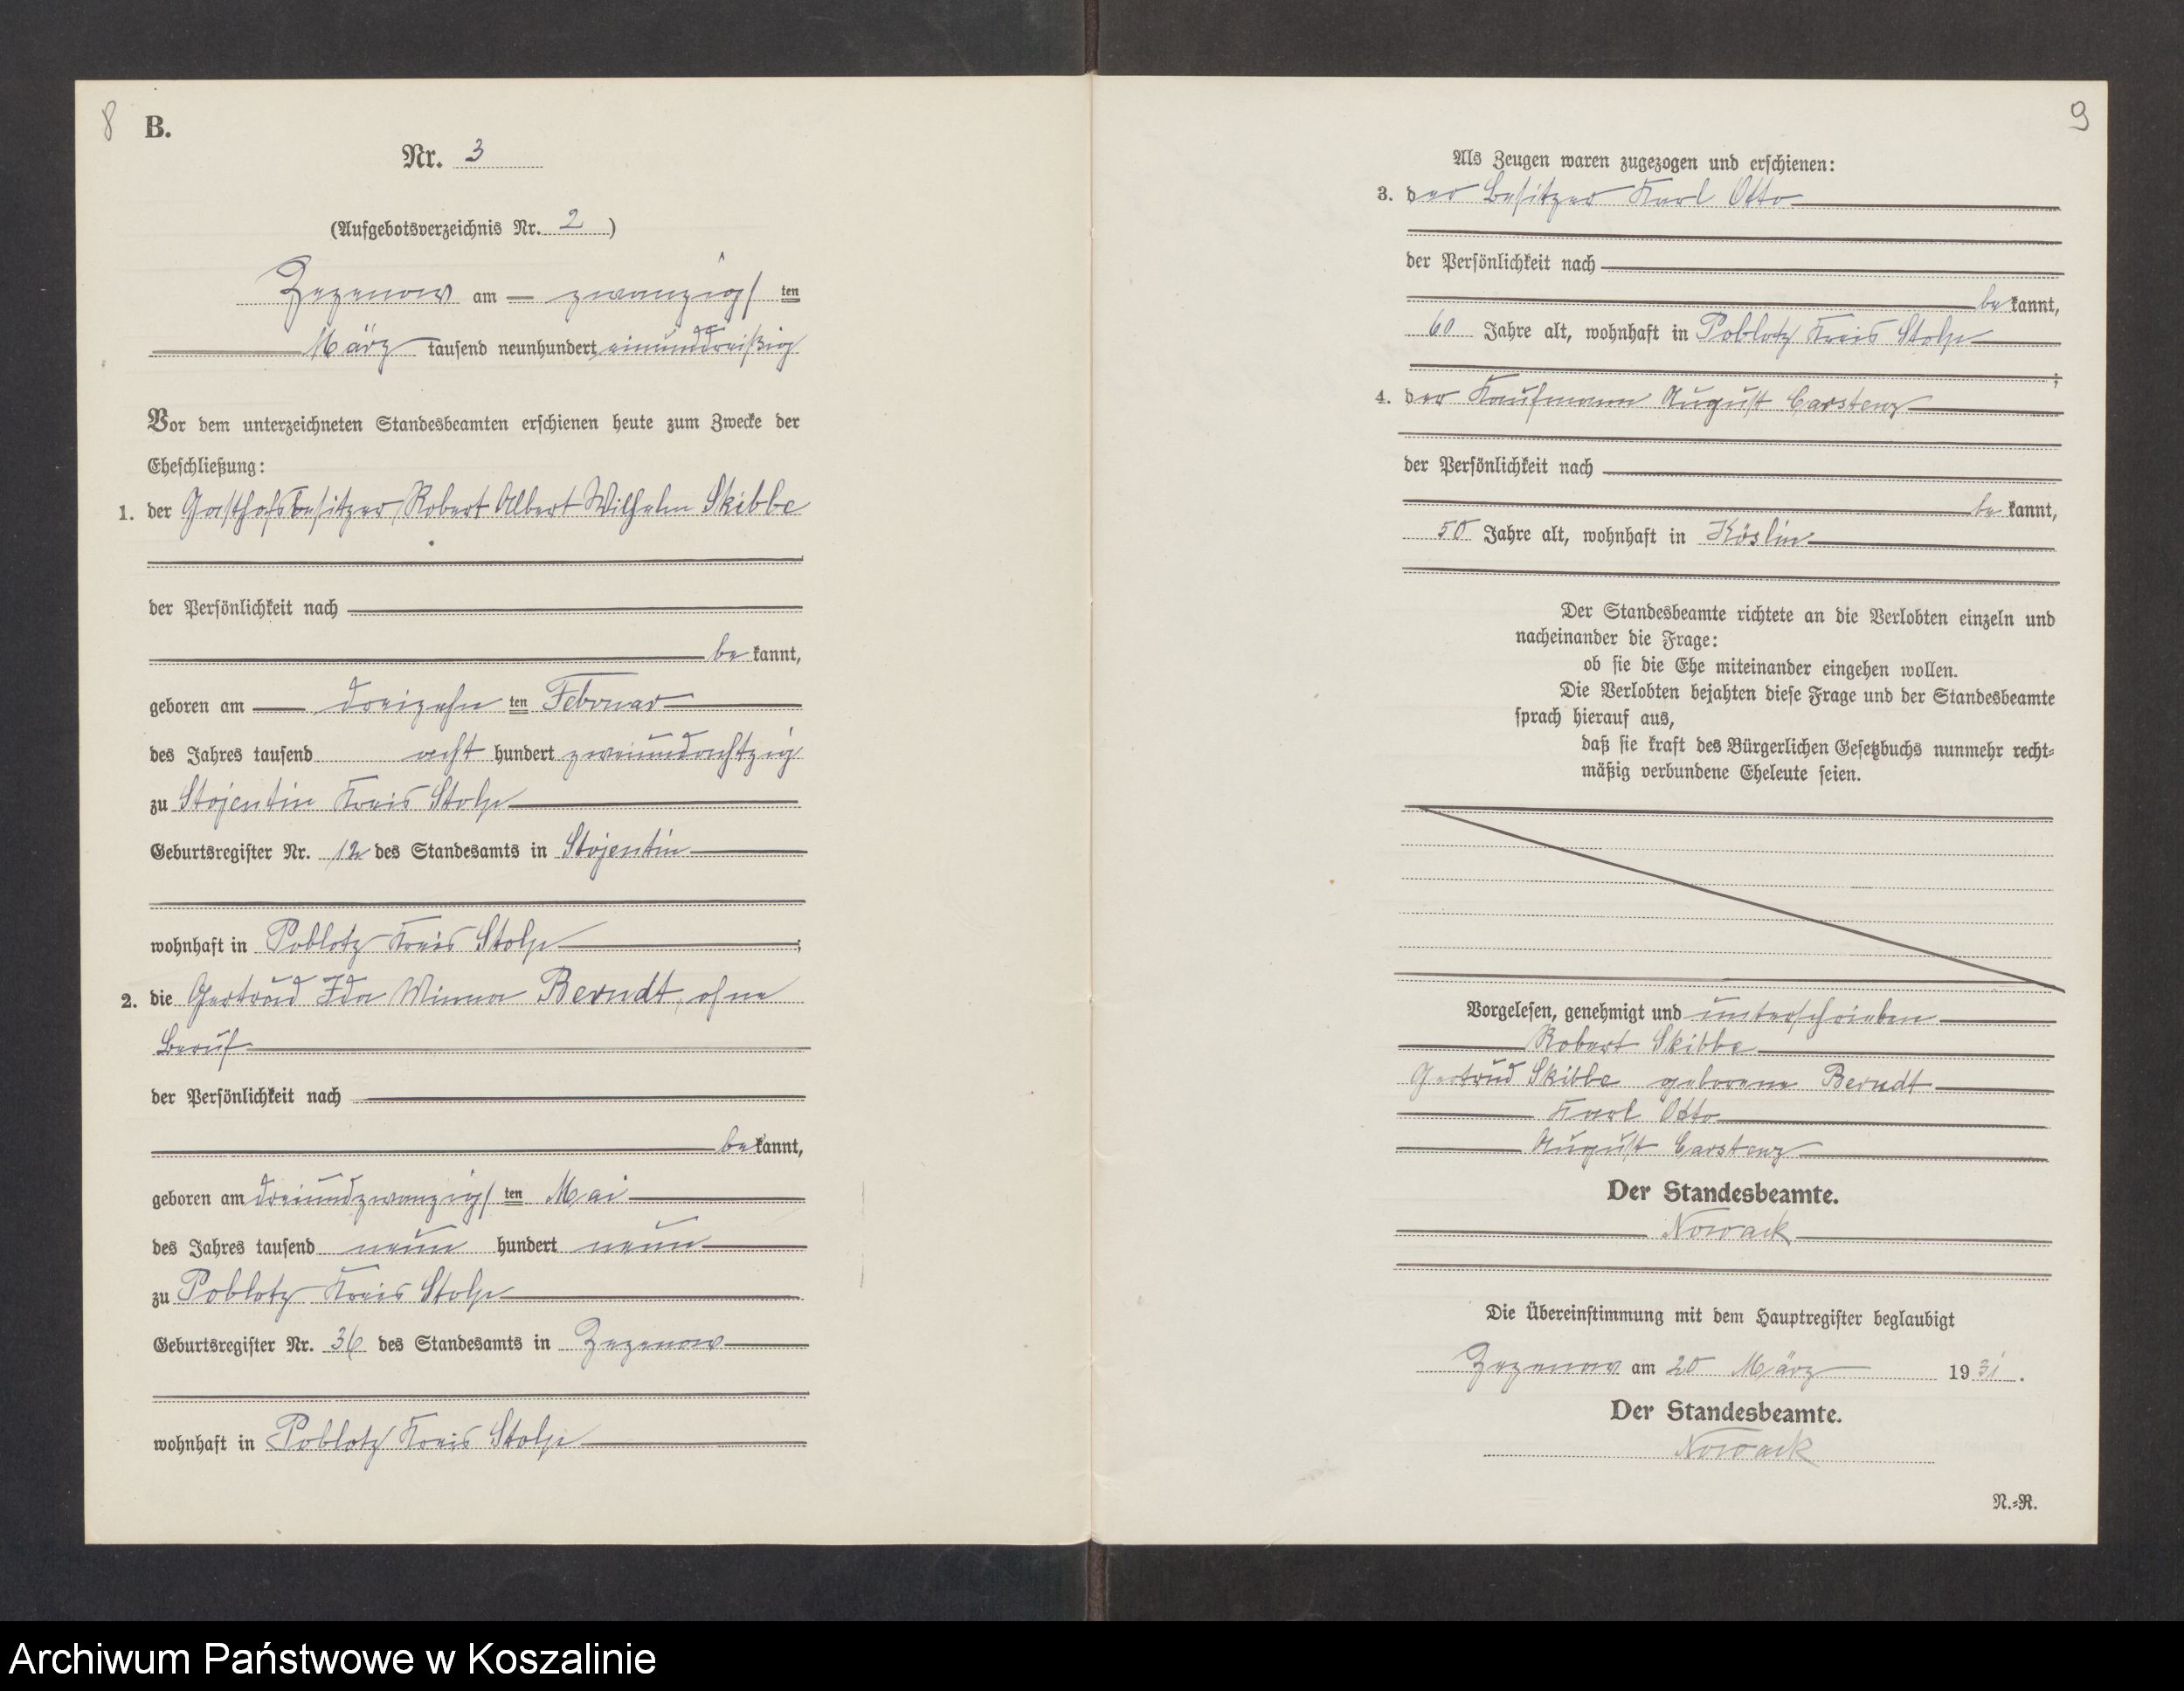 8
B.
Nr. 3
(Aufgebotsverzeichnis Nr. 2)
Zezenow am — zwanzigsten
März tausend neunhundert einunddreißig
Vor dem unterzeichneten Standesbeamten erschienen heute zum Zwecke der
Eheschließung:
1. der Gasthofsbesitzer Robert Albert Wilhelm Skibbe
der Persönlichkeit nach
bekannt,
geboren am — dreizehnten Februar
des Jahres tausend acht hundert zweiundachtzig
zu Stojentin Kreis Stolp
Geburtsregister Nr. 12 des Standesamts in Stojentin
wohnhaft in Poblotz Kreis Stolp;
2. die Gertrud Ida Minna Berndt, ohne
Beruf
der Persönlichkeit nach
bekannt,
geboren am dreiundzwanzigsten Mai
des Jahres tausend neun hundert neun
zu Poblotz Kreis Stolp
Geburtsregister Nr. 36 des Standesamts in Zezenow
wohnhaft in Poblotz Kreis Stolp
9
Als Zeugen waren zugezogen und erschienen:
3. der Besitzer Karl Otto
der Persönlichkeit nach
bekannt,
60 Jahre alt, wohnhaft in Poblotz Kreis Stolp
;
4. der Kaufmann August Carstenz
der Persönlichkeit nach
bekannt,
50 Jahre alt, wohnhaft in Köslin
Der Standesbeamte richtete an die Verlobten einzeln und
nacheinander die Frage:
ob sie die Ehe miteinander eingehen wollen.
Die Verlobten bejahten diese Frage und der Standesbeamte
sprach hierauf aus,
daß sie kraft des Bürgerlichen Gesetzbuchs nunmehr recht-
mäßig verbundene Eheleute seien.
Vorgelesen, genehmigt und unterschrieben
Robert Skibbe
Gertrud Skibbe geborene Berndt
Karl Otto
August Carstenz
Der Standesbeamte.
Nowack
Die Übereinstimmung mit dem Hauptregister beglaubigt
Zezenow am 20 März 1931.
Der Standesbeamte.
Nowack
N.-R.
Archiwum Państwowe w Koszalinie